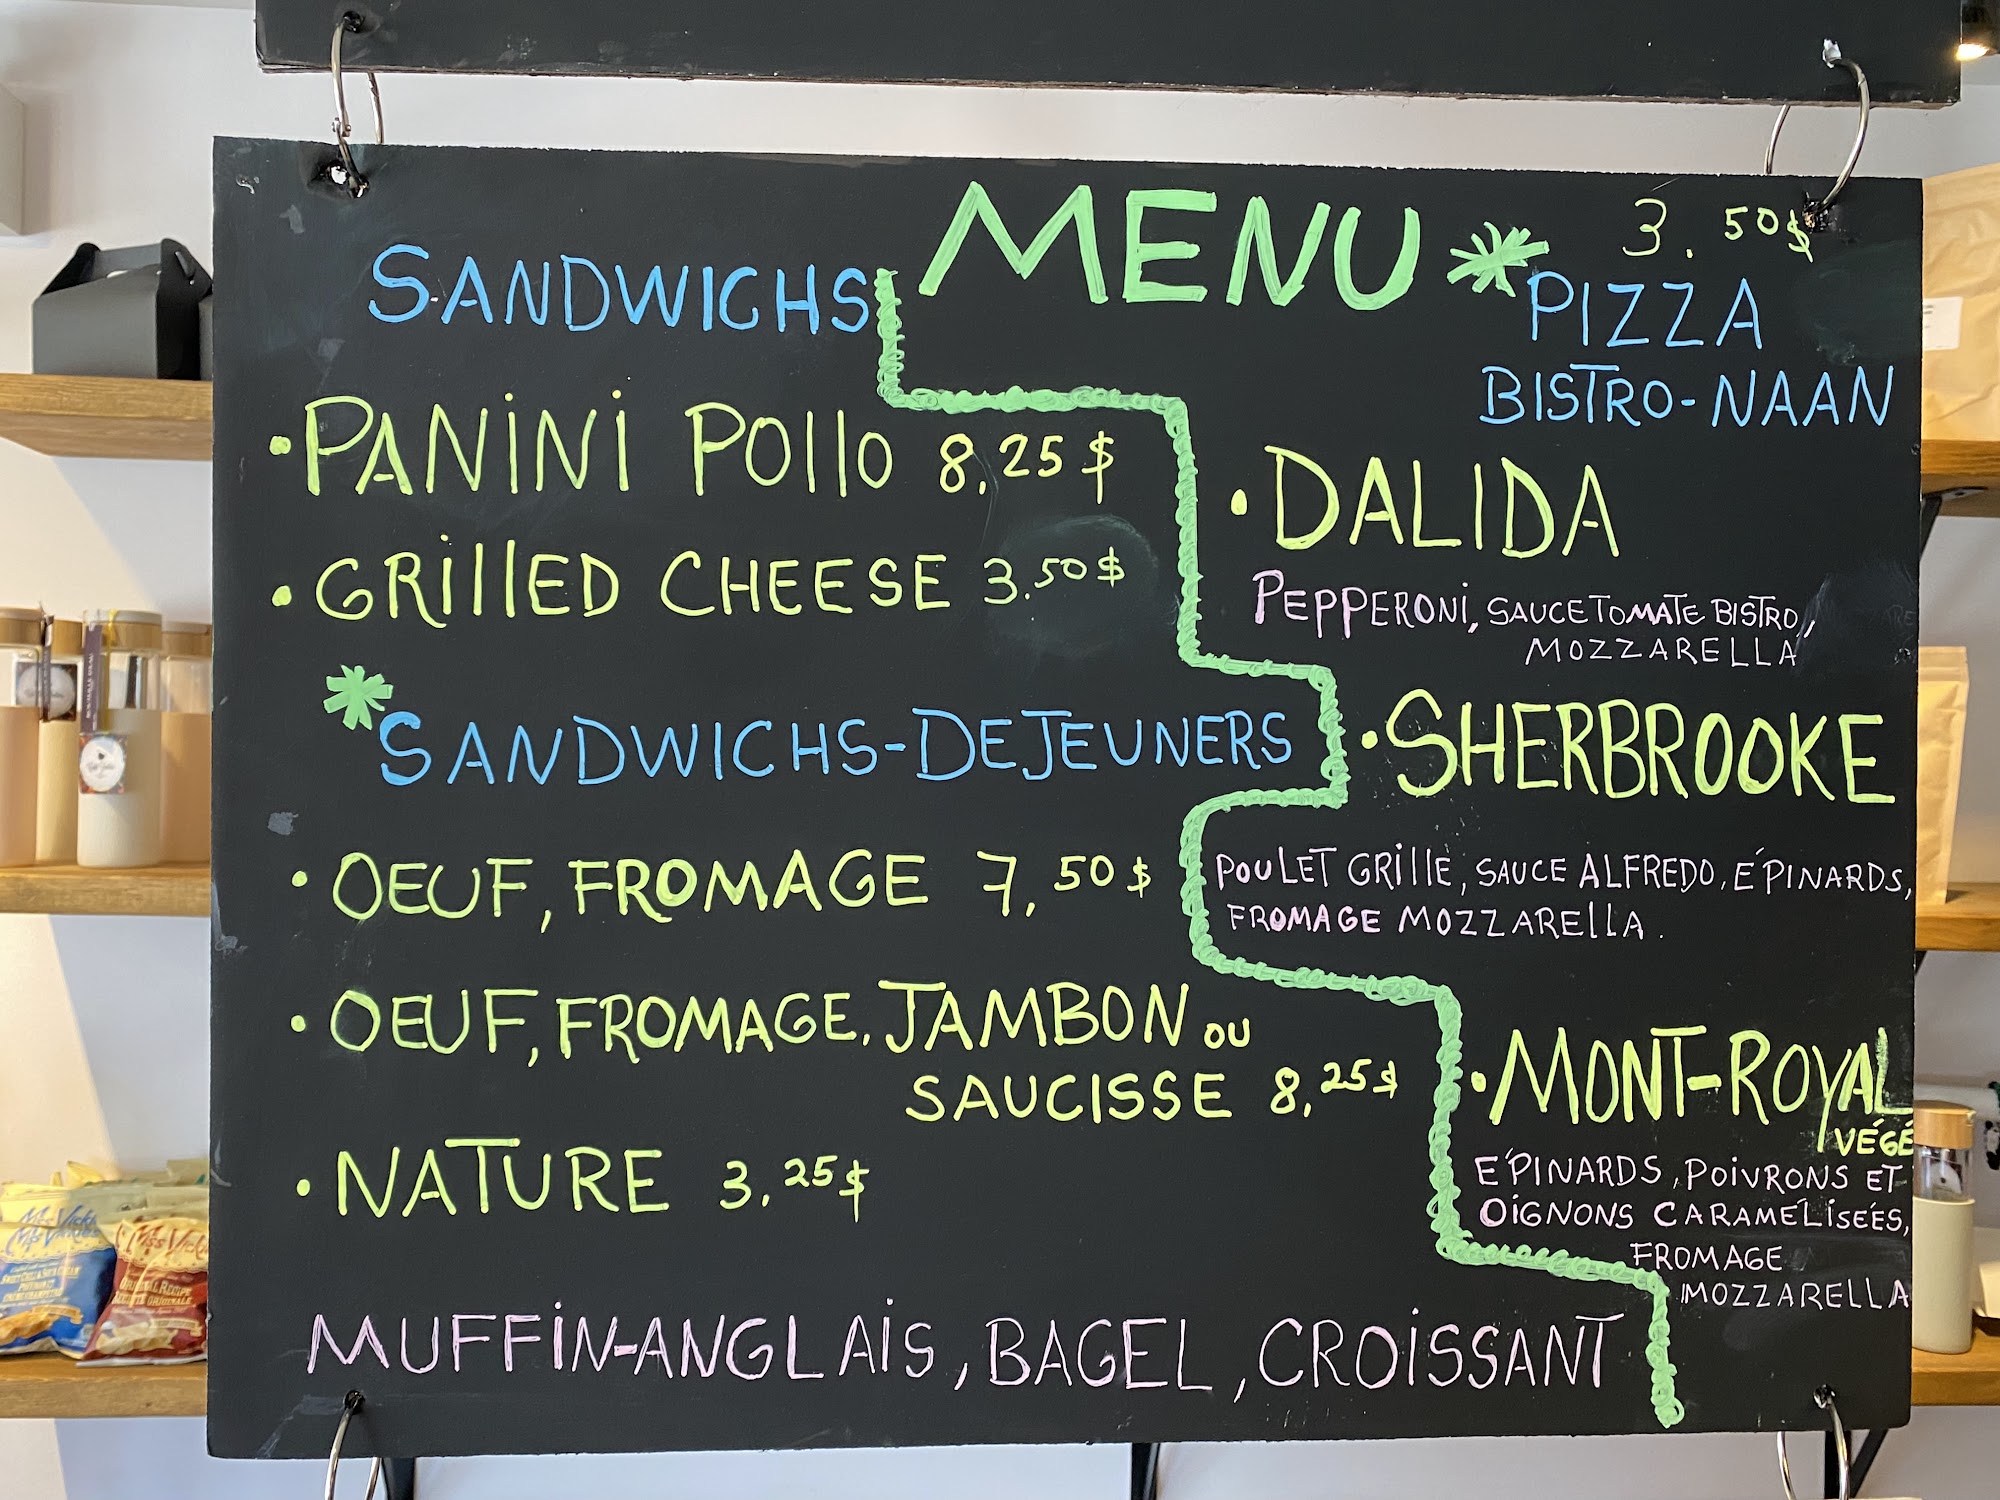 MENU
SANDWICHS
• PANINI POLLO 8,25$
• GRILLED CHEESE 3.50$
* SANDWICHS-DEJEUNERS
• OEUF, FROMAGE 7,50$
• OEUF, FROMAGE, JAMBON OU
SAUCISSE 8,25$
• NATURE 3,25$
MUFFIN-ANGLAIS, BAGEL, CROISSANT
3.50$
* PIZZA
BISTRO-NAAN
• DALIDA
PEPPERONI, SAUCE TOMATE BISTRO,
MOZZARELLA
• SHERBROOKE
POULET GRILLÉ, SAUCE ALFREDO, ÉPINARDS,
FROMAGE MOZZARELLA.
• MONT-ROYAL
VÉGÉ
ÉPINARDS, POIVRONS ET
OIGNONS CARAMÉLISÉES,
FROMAGE
MOZZARELLA
Miss Vickie
ORIGINAL RECIPE
RECETTE ORIGINALE